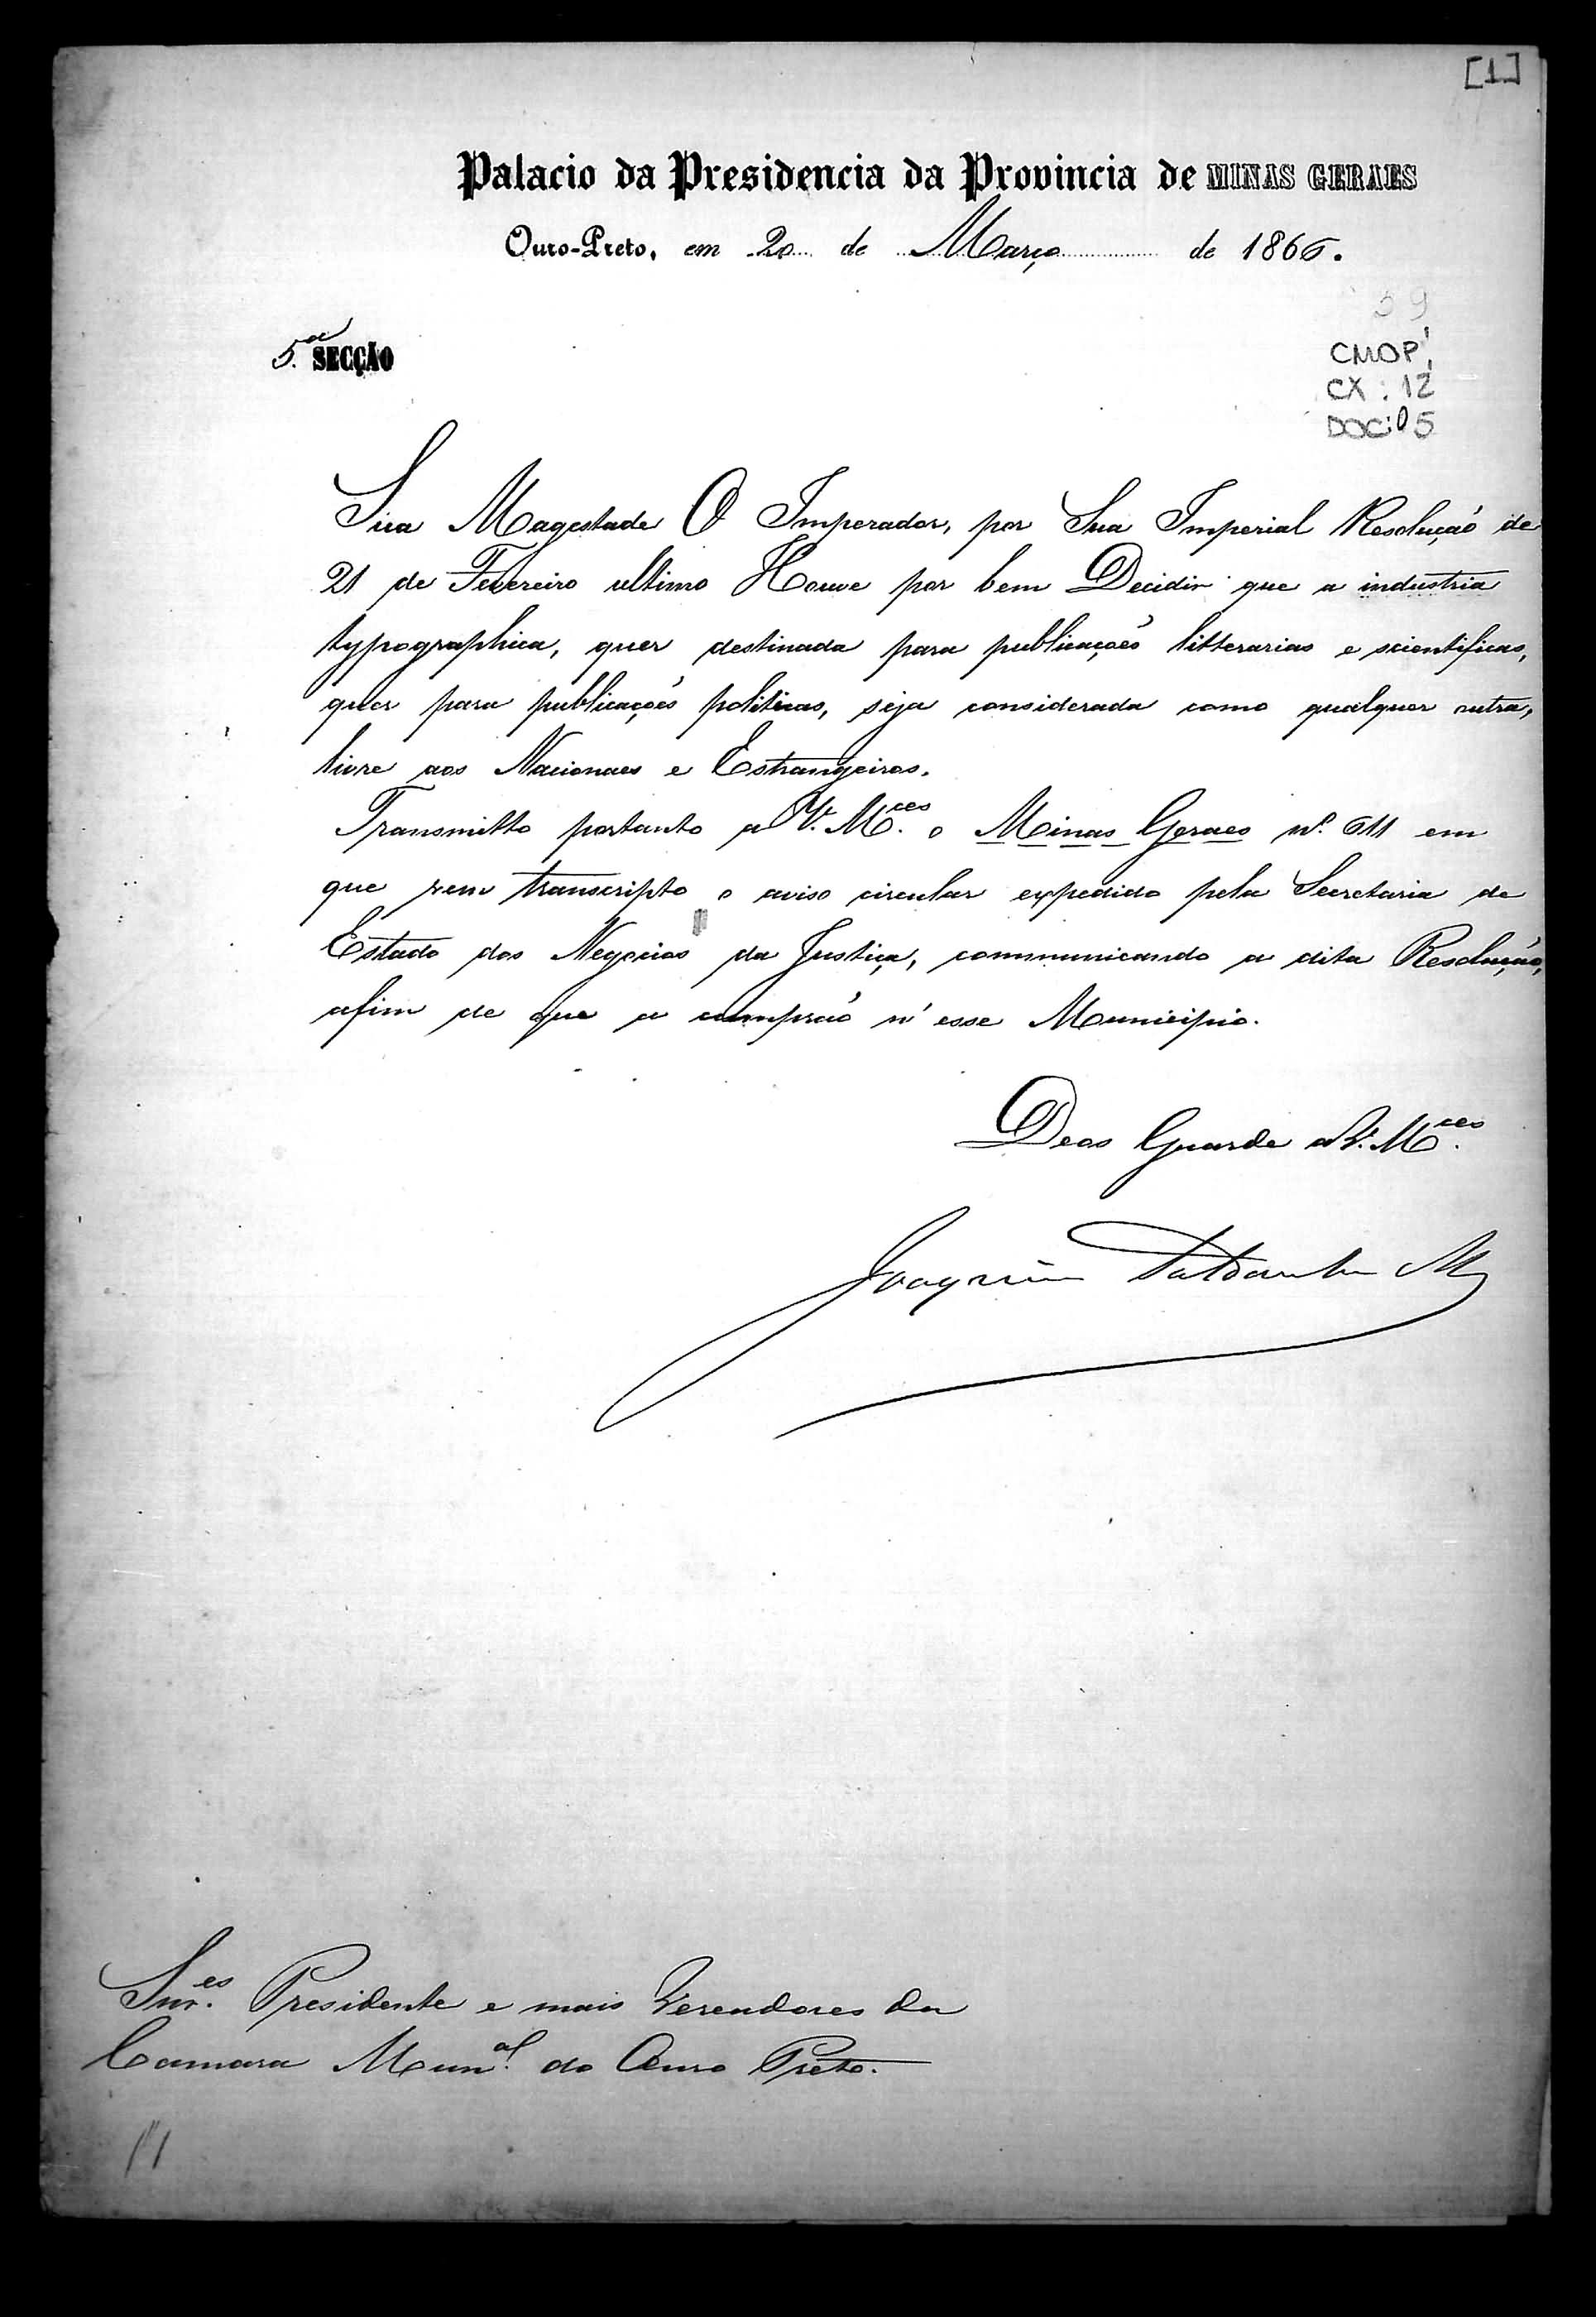 [1]
Palacio da Presidencia da Provincia de MINAS GERAES
Ouro-Preto, em 20 de Março de 1866.
59
5.ª SECÇÃO
CMOP
CX: 12
DOC: 05
Sua Magestade O Imperador, por Sua Imperial Resolução de
21 de Fevereiro ultimo Houve por bem Decidir que a industria
typographica, quer destinada para publicações litterarias e scientificas,
quer para publicações politicas, seja considerada como qualquer outra,
livre aos Nacionaes e Estrangeiros.
Transmitto portanto a V. M.ces o Minas Geraes nº. 611 em
que vem transcripto o aviso circular expedido pela Secretaria de
Estado dos Negocios da Justiça, communicando a dita Resolução,
afim de que a cumprão n'esse Municipio.
Deos Guarde a V. M.ces
Joaquim Saldanha M
Snr.es Presidente e mais Vereadores da
Camara Mun.al do Ouro Preto.